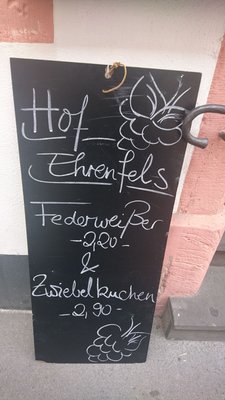 Hof
Ehrenfels
Federweißer
-2,20-
&
Zwiebelkuchen
-2,90-